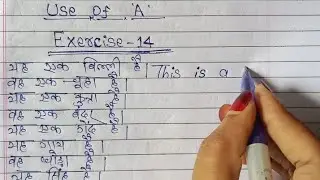 Use Of 'A'
Exercise-14
यह एक बिल्ली है। This is a
वह एक चूहा है
यह एक कुत्ता है
वह एक है
यह एक गेंद है
यह गाय है
वह घोड़ा है
यह सिंह है